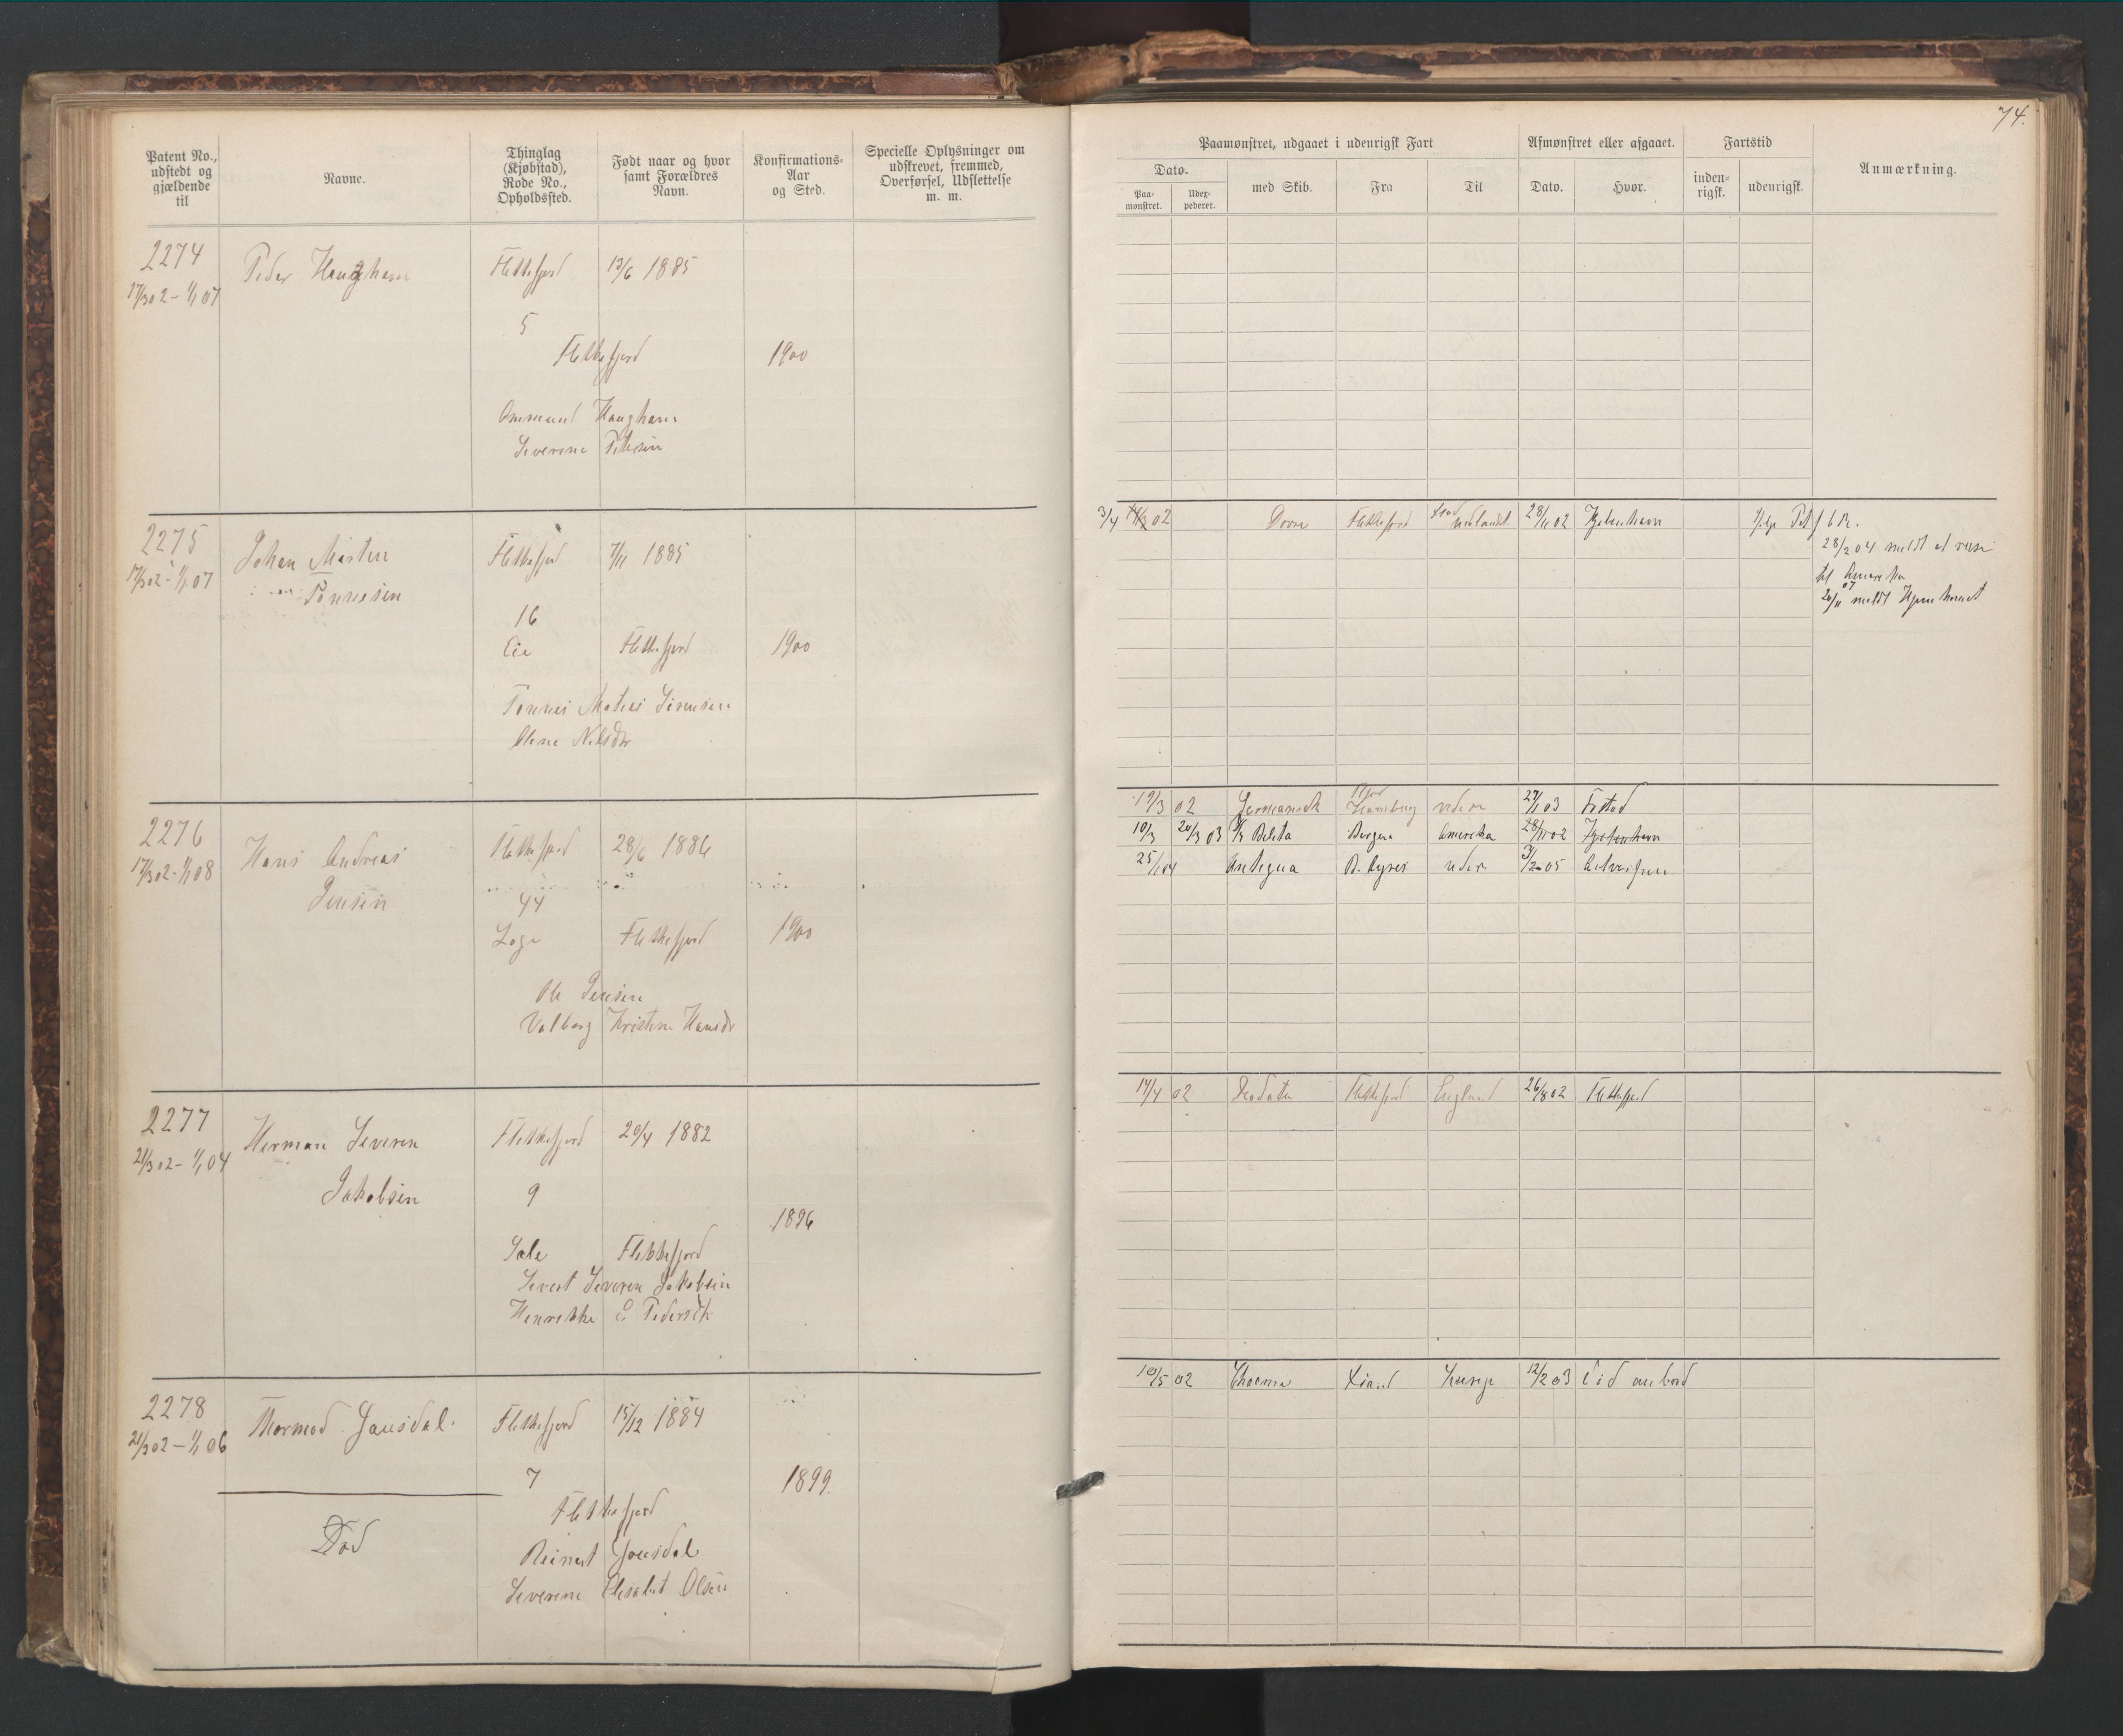 74.
Patent No., udstedt og gjældende til
Navne.
Thinglag (Kjøbstad), Rode No., Opholdssted.
Født naar og hvor samt Forældres Navn.
Konfirmations-Aar og Sted.
Specielle Oplysninger om udskrevet, fremmed, Overførsel, Udslettelse m. m.
Paamønstret, udgaaet i udenrigsk Fart
Dato.
Paa-mønstret.
Udex-pederet.
med Skib.
Fra
Til
Afmønstret eller afgaaet.
Dato.
Hvor.
Fartstid
inden-rigsk.
udenrigsk.
Anmærkning.
2274
17/3 02 - 1/1 07
Peder Haugham
Flekkefjord 13/6 1885
5
Flekkefjord 1900
Ommund Haugham
Severine Petersen
2275
17/3 02 - 1/1 07
Johan Martin
Tønnesen
Flekkefjord 7/11 1885
16
Eie Flekkefjord 1900
Tønnes Matias Sørensen
Olene Nilsdtr
3/4 02 Dovre Flekkefjord 28/11 02 Kjøbenhavn
28/2 04 meldt at reise
til Amerika
20/11 07 meldt Hjemkomst
2276
17/3 02 - 1/1 08
Hans Andreas
Jensen
Flekkefjord 28/6 1886
44
Loge Flekkefjord 1900
Ole Jensen
Valborg Kristine Hansdr
19/3 02 Hamburg videre 27/1 03 Fstad
10/3 20/3 03 Belita Bergen Amerika 28/11 02 Kjøbenhavn
25/1 04 Antigua B. Ayres videre 3/2 05
2277
21/3 02 - 1/1 04
Herman Severin
Jakobsen
Flekkefjord 20/4 1882
9
1896
Sale Flekkefjord
Sevart Severin Jakobsen
Henrikke E Pedersdtr
14/4 02 Deodata Flekkefjord England 26/8 02 Flekkefjord
2278
21/3 02 - 1/1 06
Thormod Jausdal.
Flekkefjord 15/12 1884
7
1899.
Flekkefjord
Død
Reinert Jausdal
Severine Elisabet Olsen
10/5 02 Xsand 12/2 03 Død ombord